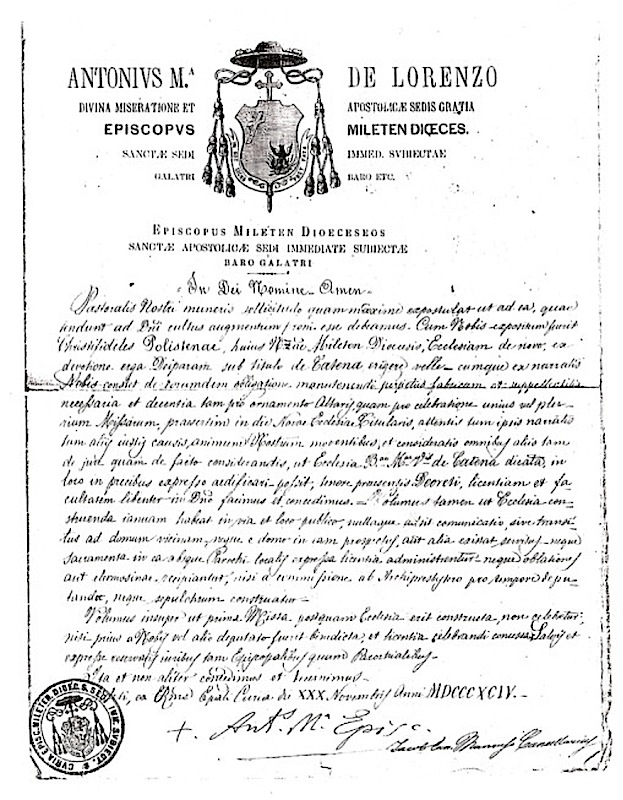 ANTONIVS M.ᴬ DE LORENZO
DIVINA MISERATIONE ET APOSTOLICÆ SEDIS GRATIA
EPISCOPVS MILETEN DIŒCES.
SANCTÆ SEDI IMMED. SVBIECTAE
GALATRI BARO ETC.
EPISCOPUS MILETEN DIOECESEOS
SANCTÆ APOSTOLICÆ SEDI IMMEDIATE SUBIECTÆ
BARO GALATRI
In Dei Nomine Amen
Pastoralis Nostri muneris sollicitudo quam maxime expostulat ut ad ea, quae
tendunt ad Dñi cultus augmentum, proni esse debeamus. Cum Nobis expositum fuerit
Christifideles Polistenae, huius Mileten Dioecesis, Ecclesiam de novo, ex
devotione erga Deiparam sub titulo de Catena erigere velle, cumque ex narratis
Nobis constet de eorumdem obligatione manutenendi perpetuo fabricam et suppellectilia
necessaria et decentia tam pro ornamento Altaris, quam pro celebratione unius vel plu-
rium Missarum, praesertim in die Ecclesiae Titularis, attentis tum ipsis narratis
tum aliis iustis causis, animum Nostrum moventibus, et consideratis omnibus aliis tam
de jure quam de facto considerandis, ut Ecclesia de Catena dicata, in
loco in precibus expresso aedificari possit, tenore praesentis Decreti, licentiam et fa
cultatem libenter in Dño facimus et concedimus. Volumus tamen ut Ecclesia con-
struenda ianuam habeat in via et loco publico, nullaque adsit comunicatio, sive transi-
tus ad domum vicinam, neque e domo in eam prospectus, aut alia existat servitus neque
sacramenta in ea absque Parochi localis expressa licentia administrentur neque oblationes
aut elemosinae recipiantur, nisi a commissione ab Archipresbytero pro tempore depu-
tandae, neque sepulchrum construatur
Volumus insuper ut prima Missa postquam Ecclesia erit constructa, non celebretur
nisi prius a Nobis vel alio deputato fuerit benedicta, et licentia celebrandi concessa. Salvis et
expresse reservatis iuribus tam Episcopalibus quam Paroecialibus
Ita et non aliter concedimus et
ex Curia die XXX Novembris Anni MDCCCXCIV.
+ Antˢ Mᵃ Episc
Cancellarius
CVRIA EPISC. MILETEN. DIOEC. S. SEDI IMM. SVBIECT.